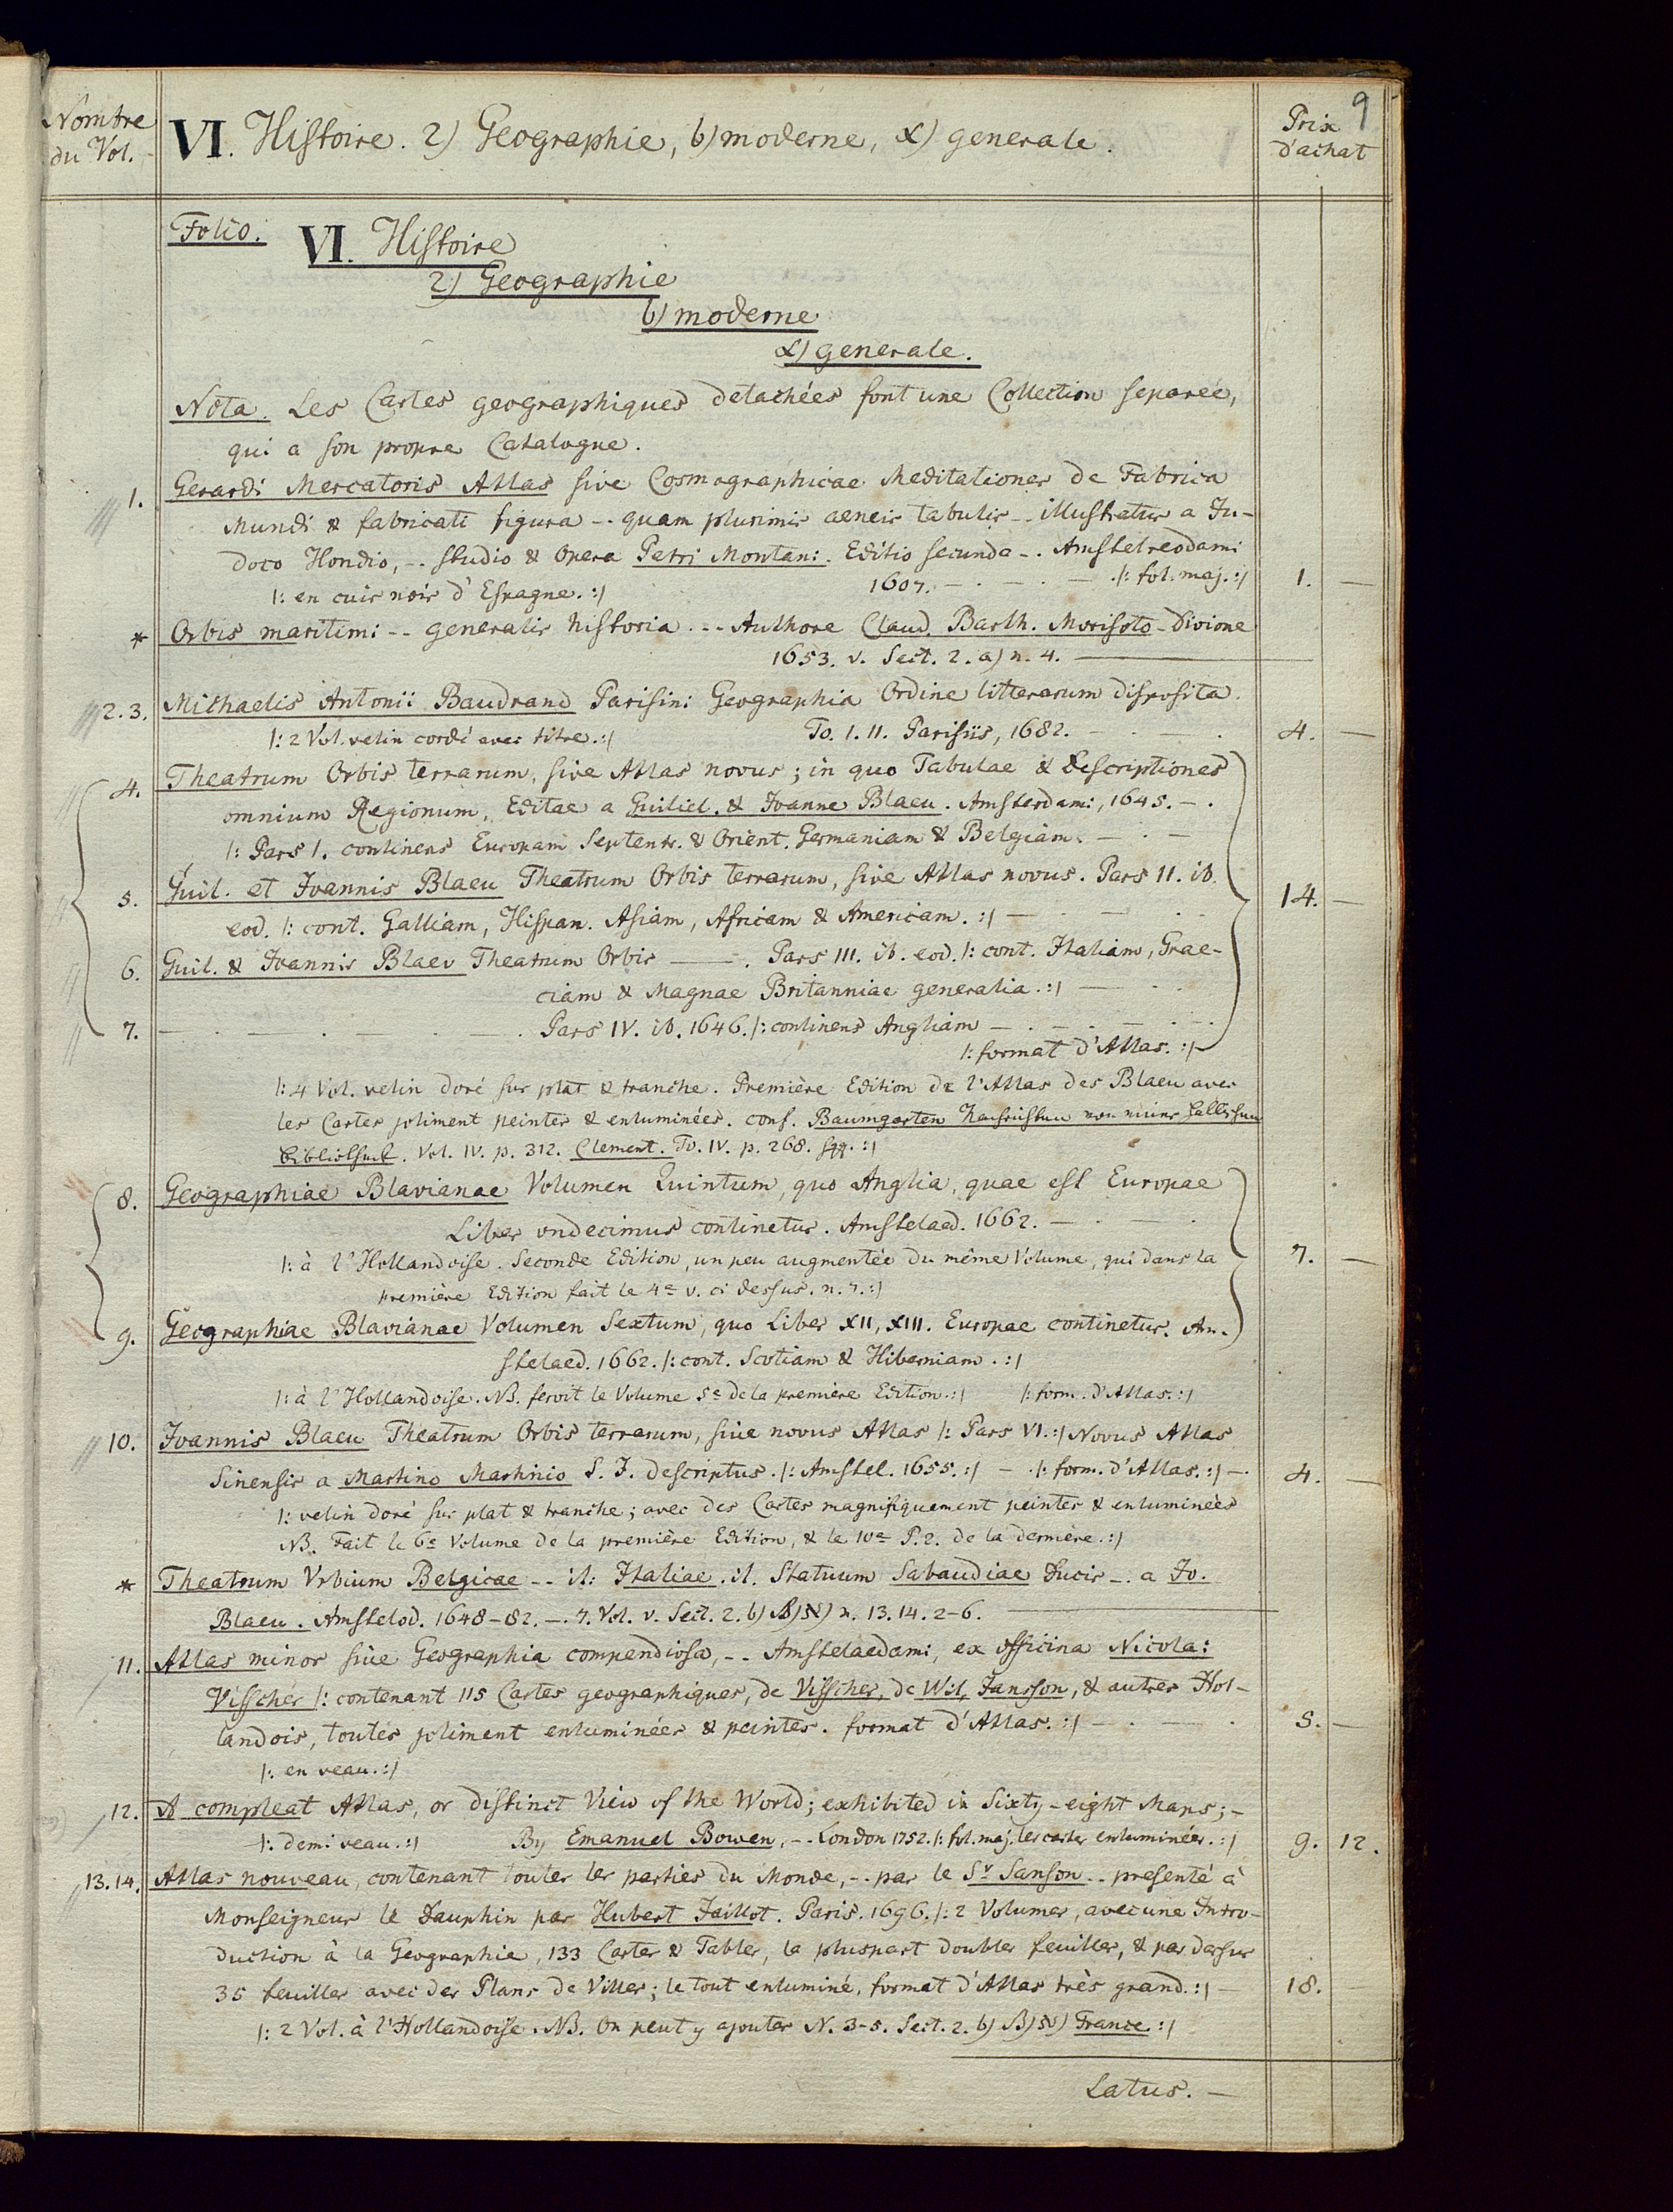 9
Nombre
du Vol.
VI. Histoire. 2) Geographie, b) moderne, α) generale.
Prix
d'achat
Folio.
VI. Histoire
2) Geographie
b) moderne
α) generale.
Nota. Les Cartes geographiques detachées font une Collection separée,
qui a son propre Catalogue.
1. Gerardi Mercatoris Atlas sive Cosmographicae Meditationes de Fabrica
Mundi & fabricati figura -. quam plurimis aeneis tabulis -. illustratus a Ju-
doco Hondio, -. studio & Opera Petri Montani. Editio secunda -. Amstelreodami
1607. — . — . — . |: fol. maj. :| 1. —
|: en cuir noir d'Espagne. :|
* Orbis maritimi -- generalis historia. -- Authore Claud. Barth. Morisoto - Divione
1653. v. Sect. 2. a) n. 4. —
2.3. Michaelis Antonii Baudrand Parisini Geographia Ordine litterarum disposita.
|: 2 Vol. velin cordé avec titre. :| To. I. II. Parisiis, 1682. — . — . 4. —
4. Theatrum Orbis terrarum, sive Atlas novus; in quo Tabulae & Descriptiones
omnium Regionum, Editae a Guiliel. & Joanne Blaeu. Amsterdami, 1645. — .
|: Pars I. continens Europam Septentr. & Orient. Germaniam & Belgiam. — . —
5. Guil. et Joannis Blaeu Theatrum Orbis terrarum, sive Atlas novus. Pars II. ib.
14. —
eod. |: cont. Galliam, Hispan. Asiam, Africam & Americam. :| — . — . .
6. Guil. & Joannis Blaeu Theatrum Orbis —. Pars III. ib. eod. |: cont. Italiam, Grae-
ciam & Magnae Britanniae generalia. :| — . .
7. — . — . — . — . Pars IV. ib. 1646. |: continens Angliam — . — . — . — .
|: format d'Atlas. :|
|: 4 Vol. velin doré sur plat & tranche. Première Edition de l'Atlas des Blaeu avec
les Cartes joliment peintes & enluminées. conf. Baumgarten Nachrichten von einer hallischen
Bibliothek. Vol. IV. p. 312. Clement. To. IV. p. 268. sqq. :|
8. Geographiae Blavianae Volumen Quintum, quo Anglia, quae est Europae
Liber undecimus continetur. Amstelaed. 1662. — . — .
|: à l'Hollandoise. Seconde Edition, un peu augmentée du même Volume, qui dans la
7. —
première Edition fait le 4e v. ci dessus. n. 7. :|
9. Geographiae Blavianae Volumen Sextum, quo Liber XII, XIII. Europae continetur. Am-
stelaed. 1662. |: cont. Scotiam & Hiberniam. :|
|: à l'Hollandoise. NB. seroit le Volume 5e de la première Edition. :| |: form. d'Atlas. :|
10. Joannis Blaeu Theatrum Orbis terrarum, sive novus Atlas |: Pars VI. :| Novus Atlas
Sinensis a Martino Martinio S. J. descriptus. |: Amstel. 1655. :| — . |: form. d'Atlas. :| — . 4. —
|: velin doré sur plat & tranche; avec des Cartes magnifiquement peintes & enluminées
NB. Fait le 6e Volume de la première Edition, & le 10e P. 2. de la dernière. :|
* Theatrum Urbium Belgicae -- it. Italiae. it. Statuum Sabaudiae Ducis -. a Jo.
Blaeu. Amstelod. 1648-82. -. 7. Vol. v. Sect. 2. b) β) א) n. 13. 14. 2-6. —
11. Atlas minor sive Geographia compendiosa, -- Amstelaedami, ex officina Nicolai
Visscher |: contenant 115 Cartes geographiques, de Visscher, de Wit, Jansson, & autres Hol-
landois, toutes joliment enluminées & peintes. format d'Atlas. :| — . — . 5. —
|: en veau. :|
12. A compleat Atlas, or distinct View of the World; exhibited in Sixty-eight Maps; -
|: demi veau. :| By Emanuel Bowen, -. London 1752. |: fol. maj. les cartes enluminées. :| 9. 12.
13.14. Atlas nouveau, contenant toutes les parties du Monde, -. par le Sr Sanson -. presenté à
Monseigneur le Dauphin par Hubert Jaillot. Paris. 1696. |: 2 Volumes, avec une Intro-
duction à la Geographie, 133 Cartes & Tables, la pluspart doubles feuilles, & par dessus
35 feuilles avec des Plans de Villes; le tout enluminé, format d'Atlas très grand. :| — 18. —
|: 2 Vol. à l'Hollandoise. NB. On peut y ajouter N. 3-5. Sect. 2. b) β) א) France. :|
Latus. —